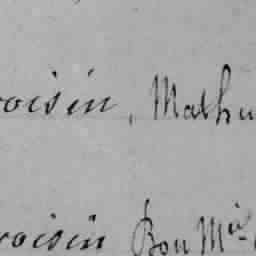 voisin, Mathu
voisin Bon Mie